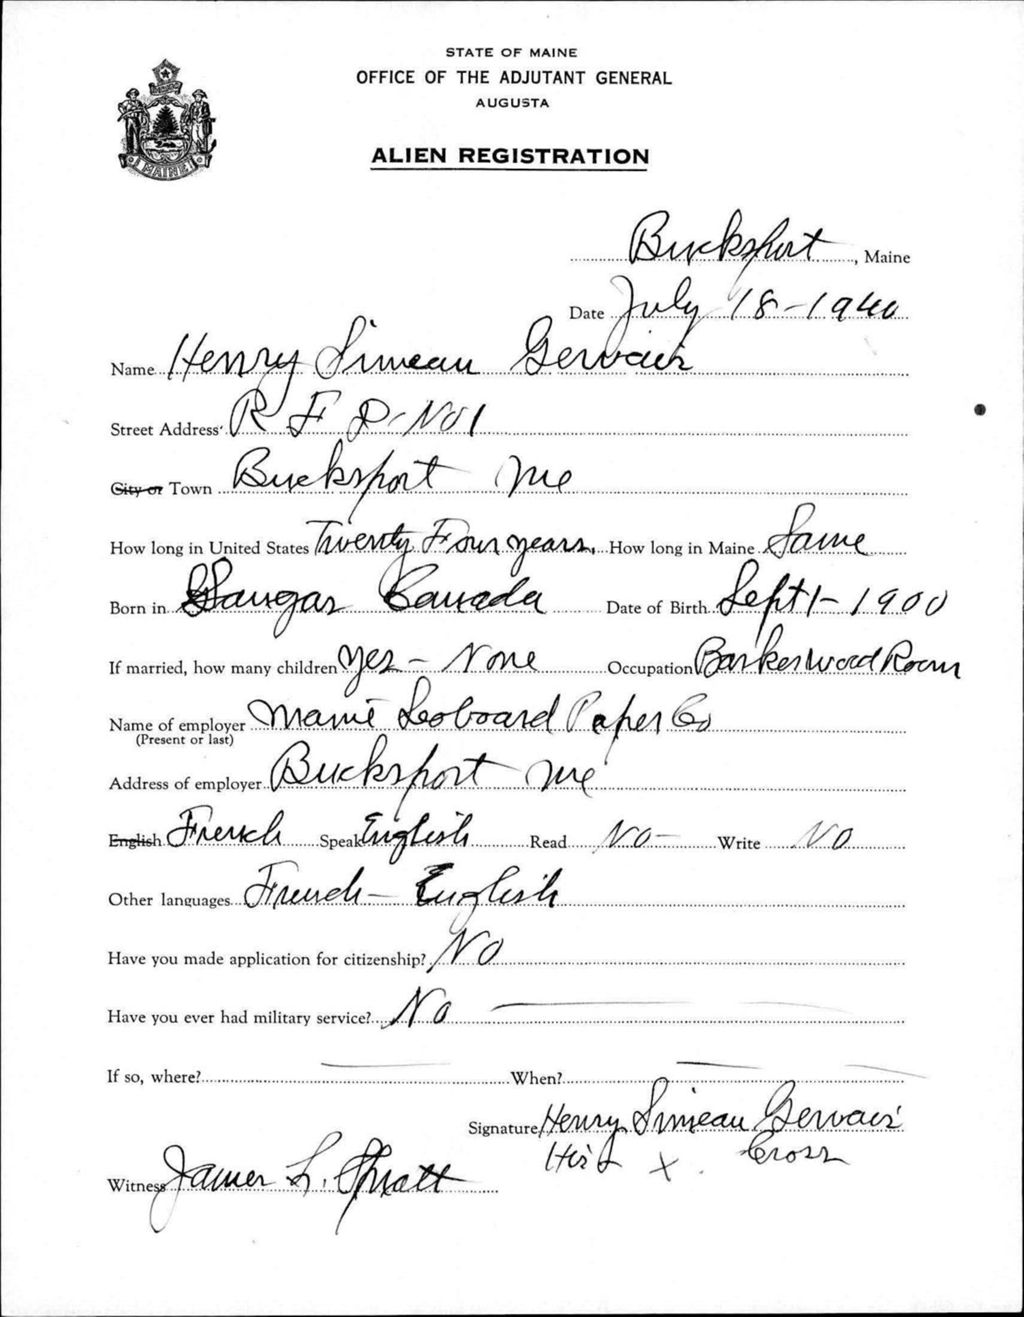 STATE OF MAINE
OFFICE OF THE ADJUTANT GENERAL
AUGUSTA
ALIEN REGISTRATION
MAINE
Bucksport, Maine
Date July 18-1940
Name Henry Simeau Gervais
Street Address R F D-No 1
City or Town Bucksport Me
How long in United States Twenty Four years. How long in Maine Same
Born in Canada Date of Birth Sept 1-1900
If married, how many children yes - None Occupation Barker Wood Room
Name of employer Maine Seaboard Paper Co
(Present or last)
Address of employer Bucksport Me
English French Speak English Read No- Write No
Other languages French - English
Have you made application for citizenship? No
Have you ever had military service? No
If so, where? When?
Signature Henry Simeau Gervais
His X Cross
Witness James L. Spratt